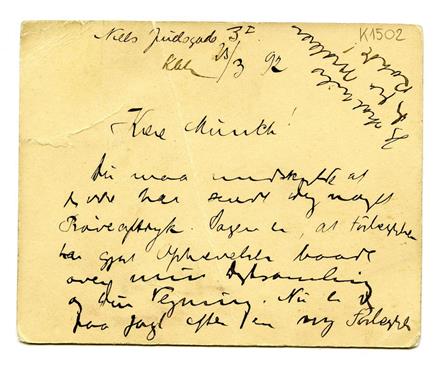 K1502
Niels Juelsgade 3 I
Kbh 23/3 92
Kære Munch!
Du maa undskylde at
jeg ikke har sendt dig noget
Prøveaftryk. Sagen er, at Forlæggeren
har gjort Ophævelser baade
over min Digtsamling
og din Tegning. Nu er jeg
paa Jagt efter en ny Forlægger